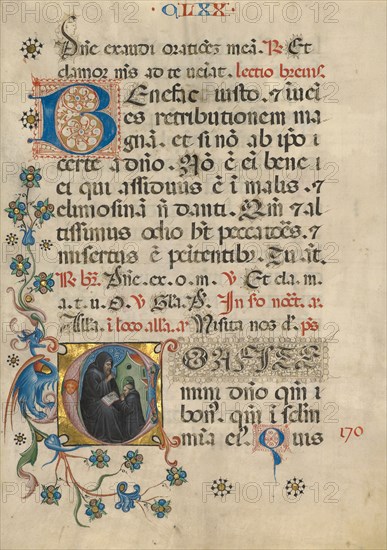 CLXX
Dñe exaudi orationez meã. R Et
clamor m̃s ad te ueniat. lectio breuis.
Benefac iusto. et inueni
es retributionem ma
gnã. et si nõ ab ipo i
certe a dño. Nõ ẽ ei bene i
ei qui assiduus ẽ i malis. et
elimosinã ñ danti. Qm̃ et al
tissimus odio hꝫ pecc̃ores. et
misertus ẽ penitentibꝫ. Tu aut̃.
R br̃. Dñe. ex. o. m. V Et cla. m.
a. t. u. D. V Gl̃a. P. In
Alla. i loco alla. ar Misita nos d. ps
CONFITE
mini dño qm̃ i
bon. qm̃ i sclm
mia ei. Quis
170
PHOTO12